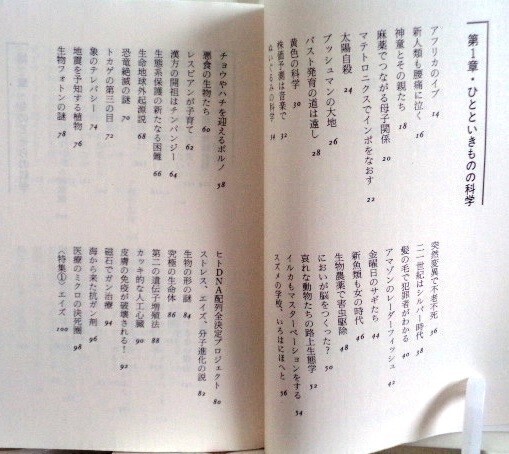 第1章・ひとといきものの科学
アフリカのイブ 14
新人類も腰痛に泣く 16
神童とその親たち 18
麻薬でつながる母子関係 20
マテトロニクスでインポをなおす 22
太陽自殺 24
ブッシュマンの大地 26
バスト発育の道は遠し 28
黄色の科学 30
株価予測は音楽で 32
ぬいぐるみの科学 34
突然変異で不老不死 36
二一世紀はシルバー時代 38
髪の毛で犯罪者がわかる 40
アマゾンのレーダーフィッシュ 42
金曜日のサギたち 44
新魚類も女の時代 46
生物農薬で害虫駆除 48
においが脳をつくった? 50
哀れな動物たちの路上生態学 52
イルカもマスターベーションをする 54
スズメの学校、いろはにほへと 56
チョウやハチを迎えるポルノ 58
悪食の生物たち 60
レスビアンが子育て 62
漢方の開祖はチンパンジー 64
生態系保護の新たなる困難 66
生命地球外起源説 68
恐竜絶滅の謎 70
トカゲの第三の目 72
象のテレパシー 74
地震を予知する植物 76
生物フォトンの謎 78
ヒトDNA配列全決定プロジェクト 80
ストレス、エイズ、分子進化の説 82
生物の形の謎 84
究極の生命体 86
第二の遺伝子増殖法 88
カッキ的な人工心臓 90
皮膚の免疫が破壊される! 92
磁石でガン治療 94
海から来た抗ガン剤 96
医療のミクロの決死圏 98
〈特集①〉エイズ 100